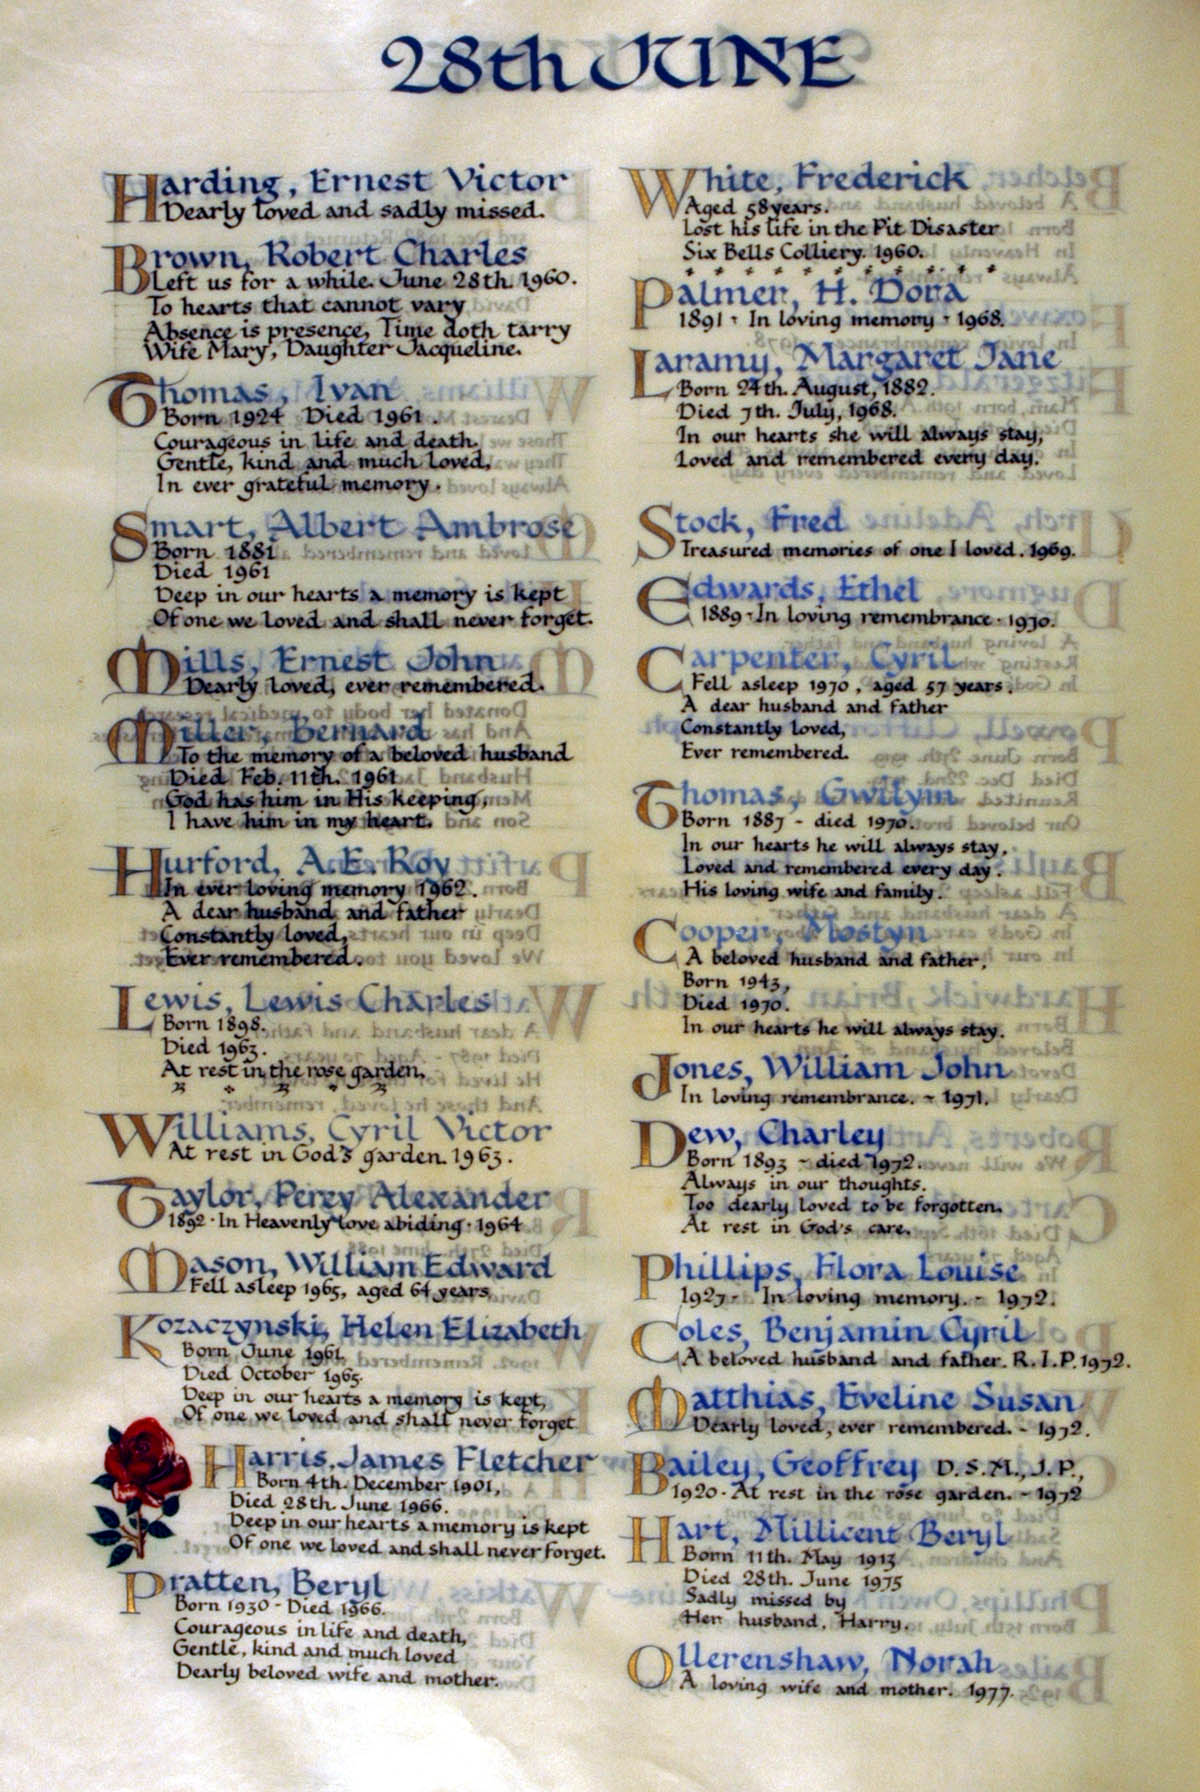 28th JUNE
Harding, Ernest Victor
Dearly loved and sadly missed.
Brown, Robert Charles
Left us for a while. June 28th. 1960.
To hearts that cannot vary
Absence is presence, Time doth tarry
Wife Mary, Daughter Jacqueline.
Thomas, Ivan
Born 1924 Died 1961.
Courageous in life and death.
Gentle, kind and much loved,
In ever grateful memory.
Smart, Albert Ambrose
Born 1881
Died 1961
Deep in our hearts a memory is kept
Of one we loved and shall never forget.
Mills, Ernest John
Dearly loved, ever remembered.
Miller, Bernard
To the memory of a beloved husband
Died Feb. 11th. 1961
God has him in His keeping,
I have him in my heart.
Hurford, A.E. Roy
In ever loving memory 1962.
A dear husband and father
Constantly loved,
Ever remembered.
Lewis, Lewis Charles
Born 1898.
Died 1963.
At rest in the rose garden.
Williams, Cyril Victor
At rest in God's garden. 1963.
Taylor, Percy Alexander
1892 · In Heavenly love abiding · 1964
Mason, William Edward
Fell asleep 1965, aged 64 years
Kozaczynski, Helen Elizabeth
Born June 1961
Died October 1965.
Deep in our hearts a memory is kept,
Of one we loved and shall never forget
Harris, James Fletcher
Born 4th. December 1901,
Died 28th. June 1966.
Deep in our hearts a memory is kept
Of one we loved and shall never forget.
Pratten, Beryl
Born 1930 - Died 1966.
Courageous in life and death,
Gentle, kind and much loved
Dearly beloved wife and mother.
White, Frederick
Aged 58 years.
Lost his life in the Pit Disaster
Six Bells Colliery. 1960.
Palmer, H. Dora
1891 · In loving memory · 1968.
Laramy, Margaret Jane
Born 24th. August, 1882.
Died 7th. July, 1968.
In our hearts she will always stay,
Loved and remembered every day.
Stock, Fred
Treasured memories of one I loved. 1969.
Edwards, Ethel
1889 · In loving remembrance · 1970.
Carpenter, Cyril
Fell asleep 1970, aged 57 years.
A dear husband and father
Constantly loved,
Ever remembered.
Thomas, Gwilym
Born 1887 - died 1970.
In our hearts he will always stay,
Loved and remembered every day.
His loving wife and family.
Cooper, Mostyn
A beloved husband and father,
Born 1943,
Died 1970.
In our hearts he will always stay.
Jones, William John
In loving remembrance. ~ 1971.
Dew, Charley
Born 1893 ~ died 1972.
Always in our thoughts.
Too dearly loved to be forgotten.
At rest in God's care.
Phillips, Flora Louise
1927 - In loving memory. - 1972.
Coles, Benjamin Cyril
A beloved husband and father. R.I.P. 1972.
Matthias, Eveline Susan
Dearly loved, ever remembered. ~ 1972.
Bailey, Geoffrey D.S.M., J.P.,
1920 · At rest in the rose garden. ~ 1972
Hart, Millicent Beryl
Born 11th. May 1913
Died 28th. June 1975
Sadly missed by
Her husband, Harry.
Ollerenshaw, Norah
A loving wife and mother. 1977.